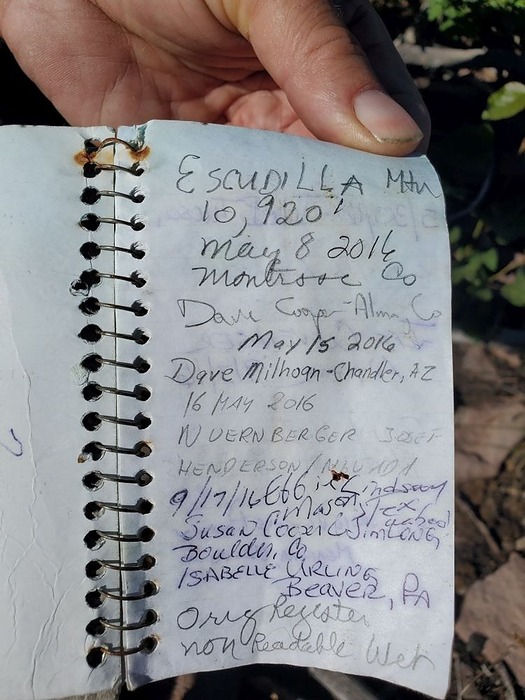 ESCUDILLA Mtn
10,920'
May 8 2016
Montrose Co
Dave Cooper-Alma, Co
May 15 2016
Dave Milhoan-Chandler, AZ
16 MAY 2016
NUERNBERGER JOSEF
HENDERSON / NEVADA
9/17/16 Lindsay
Mason, Tex
Susan Cooper
Boulder, Co
ISABELLE URLING
Beaver, PA
Orig Register
non Readable Wet